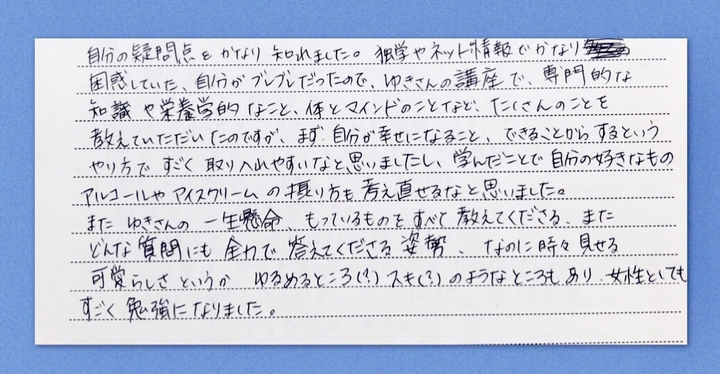 自分の疑問点をかなり知れました。独学やネット情報でかなり
困惑していた、自分がブレブレだったので、ゆきさんの講座で、専門的な
知識や栄養学的なこと、体とマインドのことなど、たくさんのことを
教えていただいたのですが、まず自分が幸せになること、できることからするという
やり方ですごく取り入れやすいなと思いましたし、学んだことで自分の好きなもの
アルコールやアイスクリームの摂り方も考え直せるなと思いました。
またゆきさんの一生懸命、もっているものをすべて教えてくださる、また
どんな質問にも全力で答えてくださる姿勢、なのに時々見せる
可愛らしさというかゆるめるところ(?)スキ(?)のようなところもあり、女性としても
すごく勉強になりました。